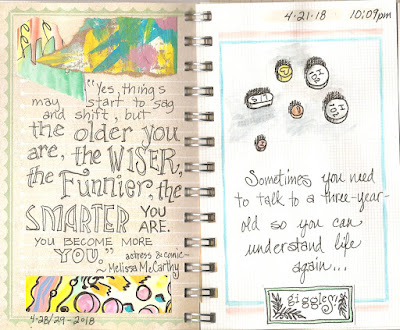 "Yes, things
may start to sag
and shift, but
the older you
are, the WISER,
the Funnier, the
SMARTER YOU
ARE.
YOU BECOME MORE
YOU."
actress & comic –
~Melissa McCarthy
4-28/29-2018
4-21-18 10:09pm
Sometimes you need
to talk to a three-year-
old so you can
understand life
again...
giggles